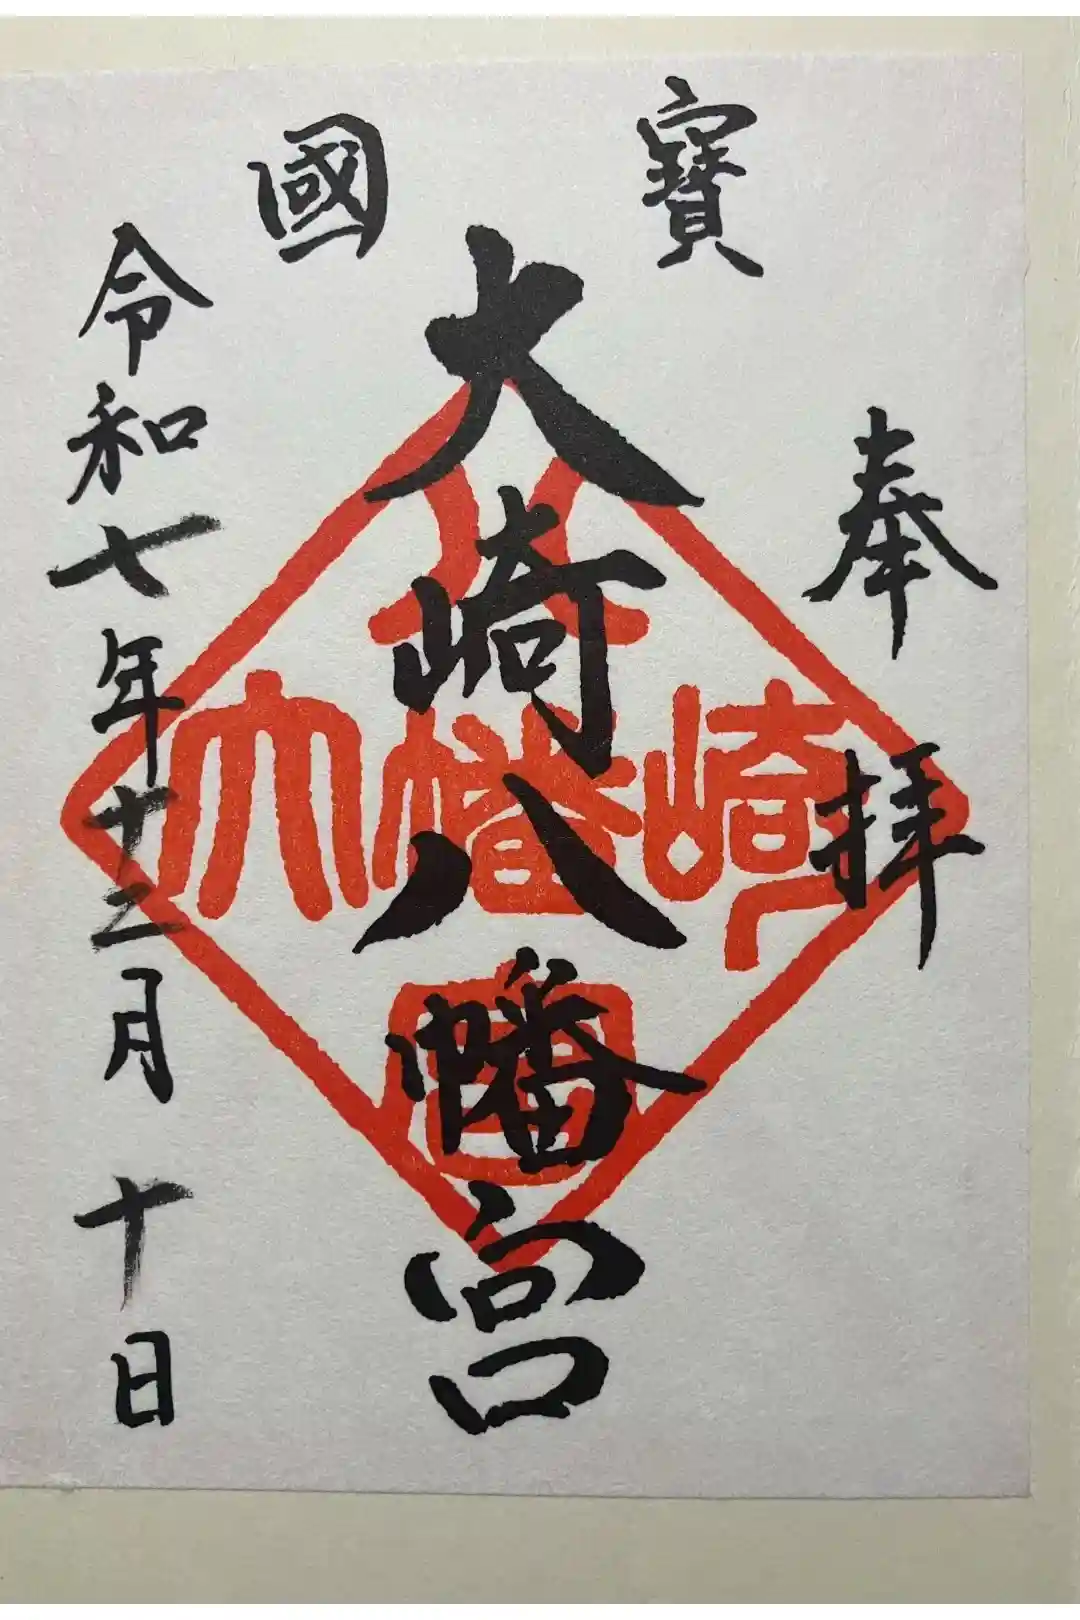 國寶
奉拝
大崎八幡宮
令和七年十二月十日
大崎八幡宮